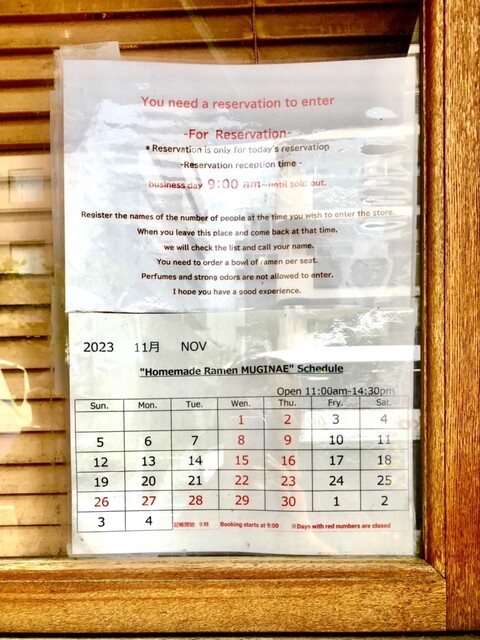 You need a reservation to enter
-For Reservation-
* Reservation is only for today's reservation
-Reservation reception time -
business day 9:00 am~until sold out.
Register the names of the number of people at the time you wish to enter the store.
When you leave this place and come back at that time,
we will check the list and call your name.
You need to order a bowl of ramen per seat.
Perfumes and strong odors are not allowed to enter.
I hope you have a good experience.
2023 11月 NOV
"Homemade Ramen MUGINAE" Schedule
Open 11:00am-14:30pm
Sun. Mon. Tue. Wed. Thu. Fry. Sat.
1 2 3 4
5 6 7 8 9 10 11
12 13 14 15 16 17 18
19 20 21 22 23 24 25
26 27 28 29 30 1 2
3 4 記帳開始 9時 Booking starts at 9:00 ※Days with red numbers are closed